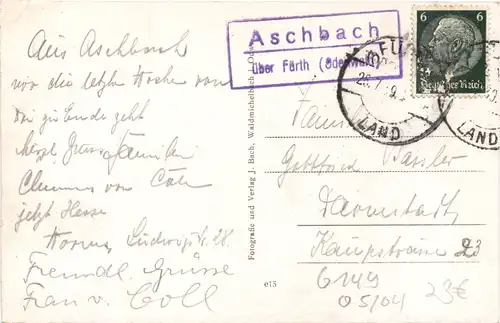 Aschbach
über Fürth (Odenwald)
6
Deutsches Reich
FÜ
LAND
LAND
Aus Aschbach
wo die letzte Woche
zu Ende geht
herzl. Grüsse Familie
von
jetzt Hessen
Worms, Ludwigstr. 28
Freundl. Grüsse
Frau v. Coll
Fotografie und Verlag J. Bach, Waldmichelbach i. O.
e15
Familie
Gottfried Bassler
Darmstadt,
Kaupstrasse 23
G149
05/04 23€